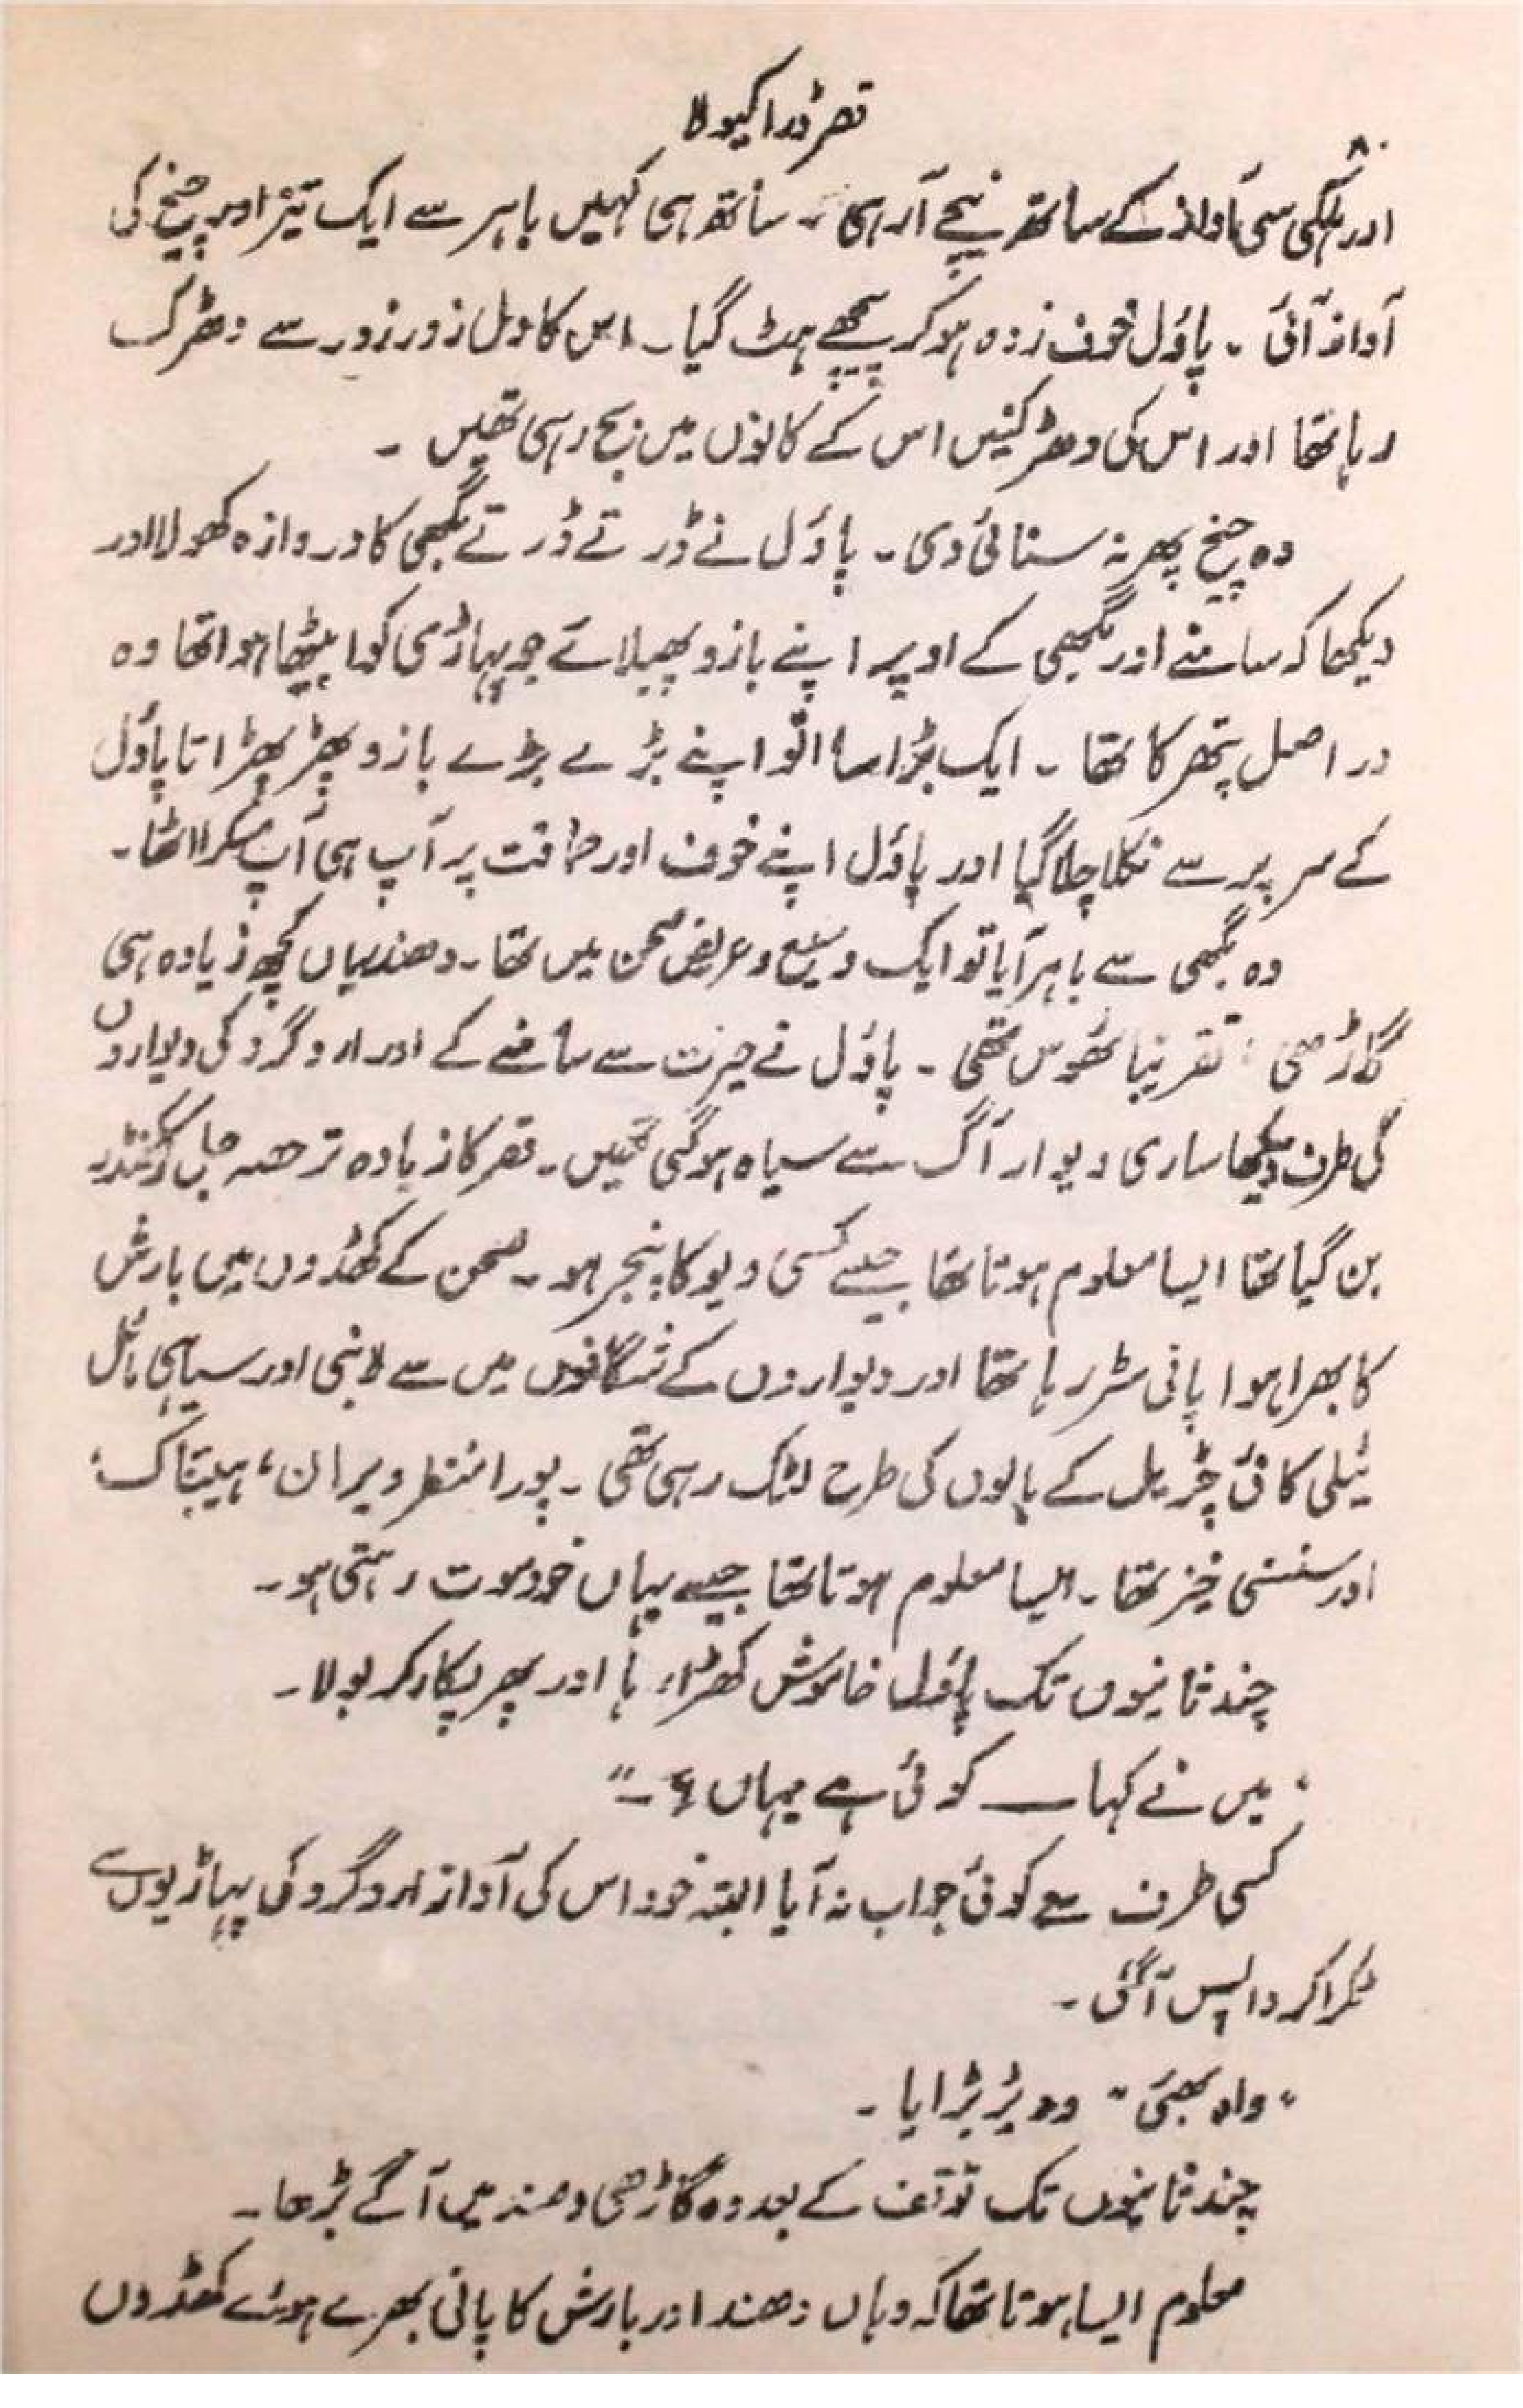 قصر ڈراکیولا
۸۰
اور ہلکی سی آواز کے ساتھ نیچے آ رہی ۔ ساتھ ہی کہیں باہر سے ایک تیز اور چیخ کی
آواز آئی ۔ پاؤل خوف زدہ ہو کر پیچھے ہٹ گیا ۔ اس کا دل زور زور سے دھڑک
رہا تھا اور اس کی دھڑکنیں اس کے کانوں میں بج رہی تھیں ۔
وہ چیخ پھر نہ سنائی دی ۔ پاؤل نے ڈرتے ڈرتے بگھی کا دروازہ کھولا اور
دیکھا کہ سامنے اور بگھی کے اوپر اپنے بازو پھیلائے جو پہاڑی کوا بیٹھا ہوا تھا وہ
در اصل پتھر کا تھا ۔ ایک بڑا سا الّو اپنے بڑے بڑے بازو پھڑپھڑاتا پاؤل
کے سر پر سے نکلا چلا گیا اور پاؤل اپنے خوف اور حماقت پر آپ ہی آپ مسکرا اٹھا ۔
وہ بگھی سے باہر آیا تو ایک وسیع و عریض صحن میں تھا ۔ دھند یہاں کچھ زیادہ ہی
گاڑھی ، تقریباً ٹھوس تھی ۔ پاؤل نے حیرت سے سامنے کے اور ارد گرد کی دیواروں
کی طرف دیکھا ساری دیوار آگ سے سیاہ ہو گئی تھیں ۔ قصر کا زیادہ تر حصہ جل کر کھنڈر
بن گیا تھا ایسا معلوم ہوتا تھا جیسے کسی دیو کا پنجر ہو ۔ صحن کے کھڈوں میں بارش
کا بھرا ہوا پانی سڑ رہا تھا اور دیواروں کے شگافوں میں سے لانبی اور سیاہی مائل
نیلی کائی چڑیل کے بالوں کی طرح لٹک رہی تھی ۔ پورا منظر ویران ، ہیبتناک ،
اور سنسنی خیز تھا ۔ ایسا معلوم ہوتا تھا جیسے یہاں خود موت رہتی ہو ۔
چند ثانیوں تک پاؤل خاموش کھڑا رہا اور پھر پکار کر بولا ۔
" میں نے کہا ــــ کوئی ہے یہاں ؟ ۔"
کسی طرف سے کوئی جواب نہ آیا البتہ خود اس کی آواز ارد گرد کی پہاڑیوں سے
ٹکرا کر واپس آ گئی ۔
" واہ بھئی " وہ بڑبڑایا ۔
چند ثانیوں تک توقف کے بعد وہ گاڑھی دھند میں آگے بڑھا ۔
معلوم ایسا ہوتا تھا کہ وہاں دھند اور بارش کا پانی بھرے ہوئے کھڈوں